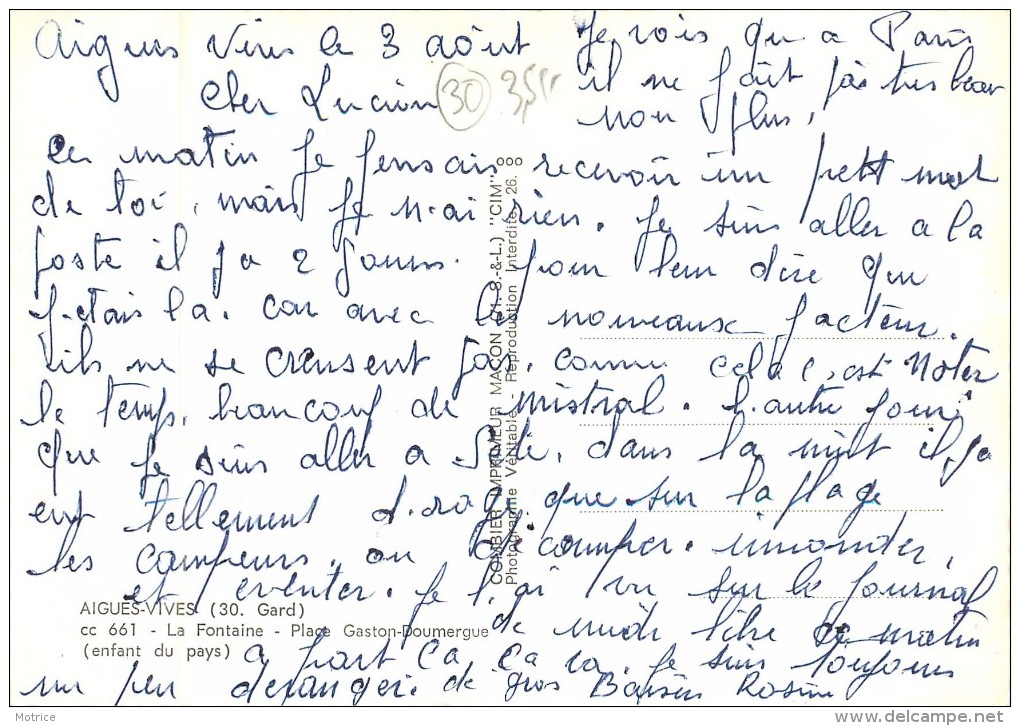 Aigues Vives le 3 août
Je vois qu a Paris
il ne fait pas tres beau
non plus.
Cher Lucien
30
3,5
ce matin je pensais recevoir un petit mot
de toi, mais je n.ai rien. Je suis aller a la
poste il y a 2 jours. pour leur dire que
j.etais la. car avec les nouveaux facteur.
ils ne se creusent pas. comme cela c.est Noter
le temps, beaucoup de mistral. l.autre jour
que je suis aller a Sète, dans la nuit il y a
eut tellement d.orage que sur la plage
les campeurs. on décamper. innonder,
et eventer. je l.ai vu sur le journal
de midi libre ce matin
a part ca, ca va. je suis toujours
un peu deranger. de gros Baisers Rosine
COMBIER IMPRIMEUR MACON (71. S.-&-L.) "CIM"
Photographie Véritable - Reproduction Interdite
26.
AIGUES-VIVES (30. Gard)
cc 661 - La Fontaine - Place Gaston-Doumergue
(enfant du pays)
Motrice
delcampe.net